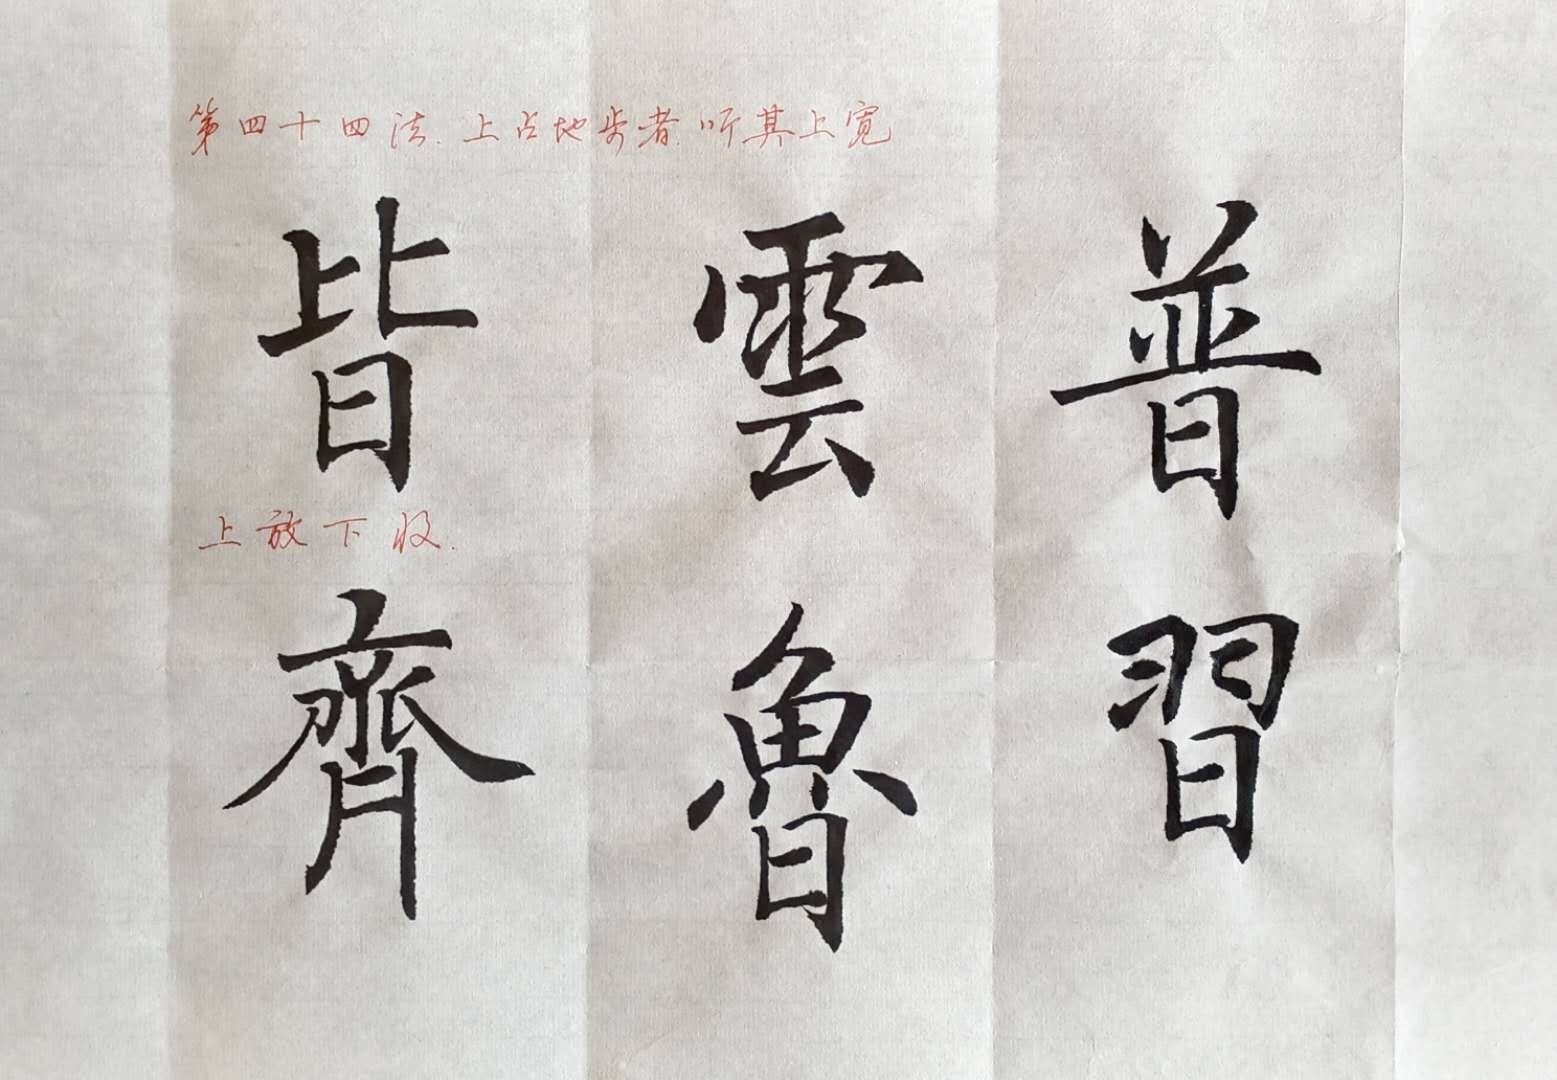 第四十四法.上占地步者.听其上宽
皆雲普
上放下收.
齊魯習